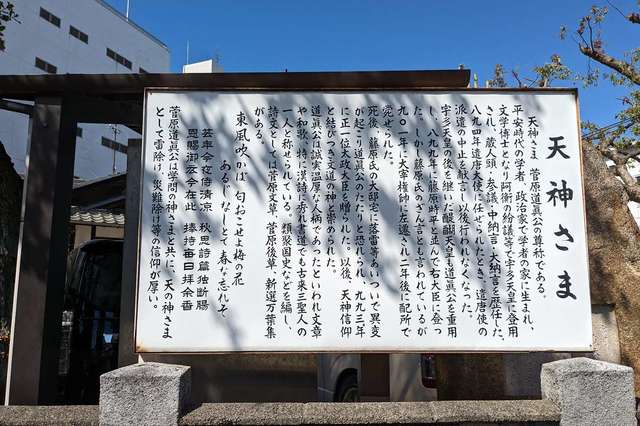 天神さま
天神さま　菅原道眞公の尊称である。
平安時代の学者、政治家で学者の家に生まれ、
文学博士となり阿衡の紛議等で宇多天皇に登用
され、蔵人頭・参議・中納言・大納言を歴任した。
八九四年遣唐大使に任ぜられたとき、遣唐使の
派遣の中止を献言し以後行われなくなった。
宇多天皇の後を継いだ醍醐天皇も道眞公を重用
し、八九九年に藤原時平と並んで右大臣に登っ
た。しかし藤原氏のざん言とも言われているが
九〇一年に大宰権帥に左遷され二年後に配所で
薨ぜられた。
死後、藤原氏の大邸宅に落雷等あいついで異変
が起こり道眞公のたたりと恐れられ、九九三年
に正一位太政大臣を贈られた。以後、天神信仰
と結びつき文道の神と崇められた。
道眞公は誠実温厚な人柄であったといわれ文章
や和歌、特に漢詩に秀れ書道でも古来三聖人の
一人と称せられている。類聚国史などを編し、
詩文としては菅原文草、菅原後草、新選万葉集
がある。
東風吹かば　匂おこせよ梅の花
あるじなしとて　春な忘れそ
去年今夜侍清涼　秋思詩篇独断腸
恩賜御衣今在此　捧持毎日拝余香
菅原道眞公は学問の神さまと共に、天の神さま
として雷除け、災難除け等の信仰が厚い。